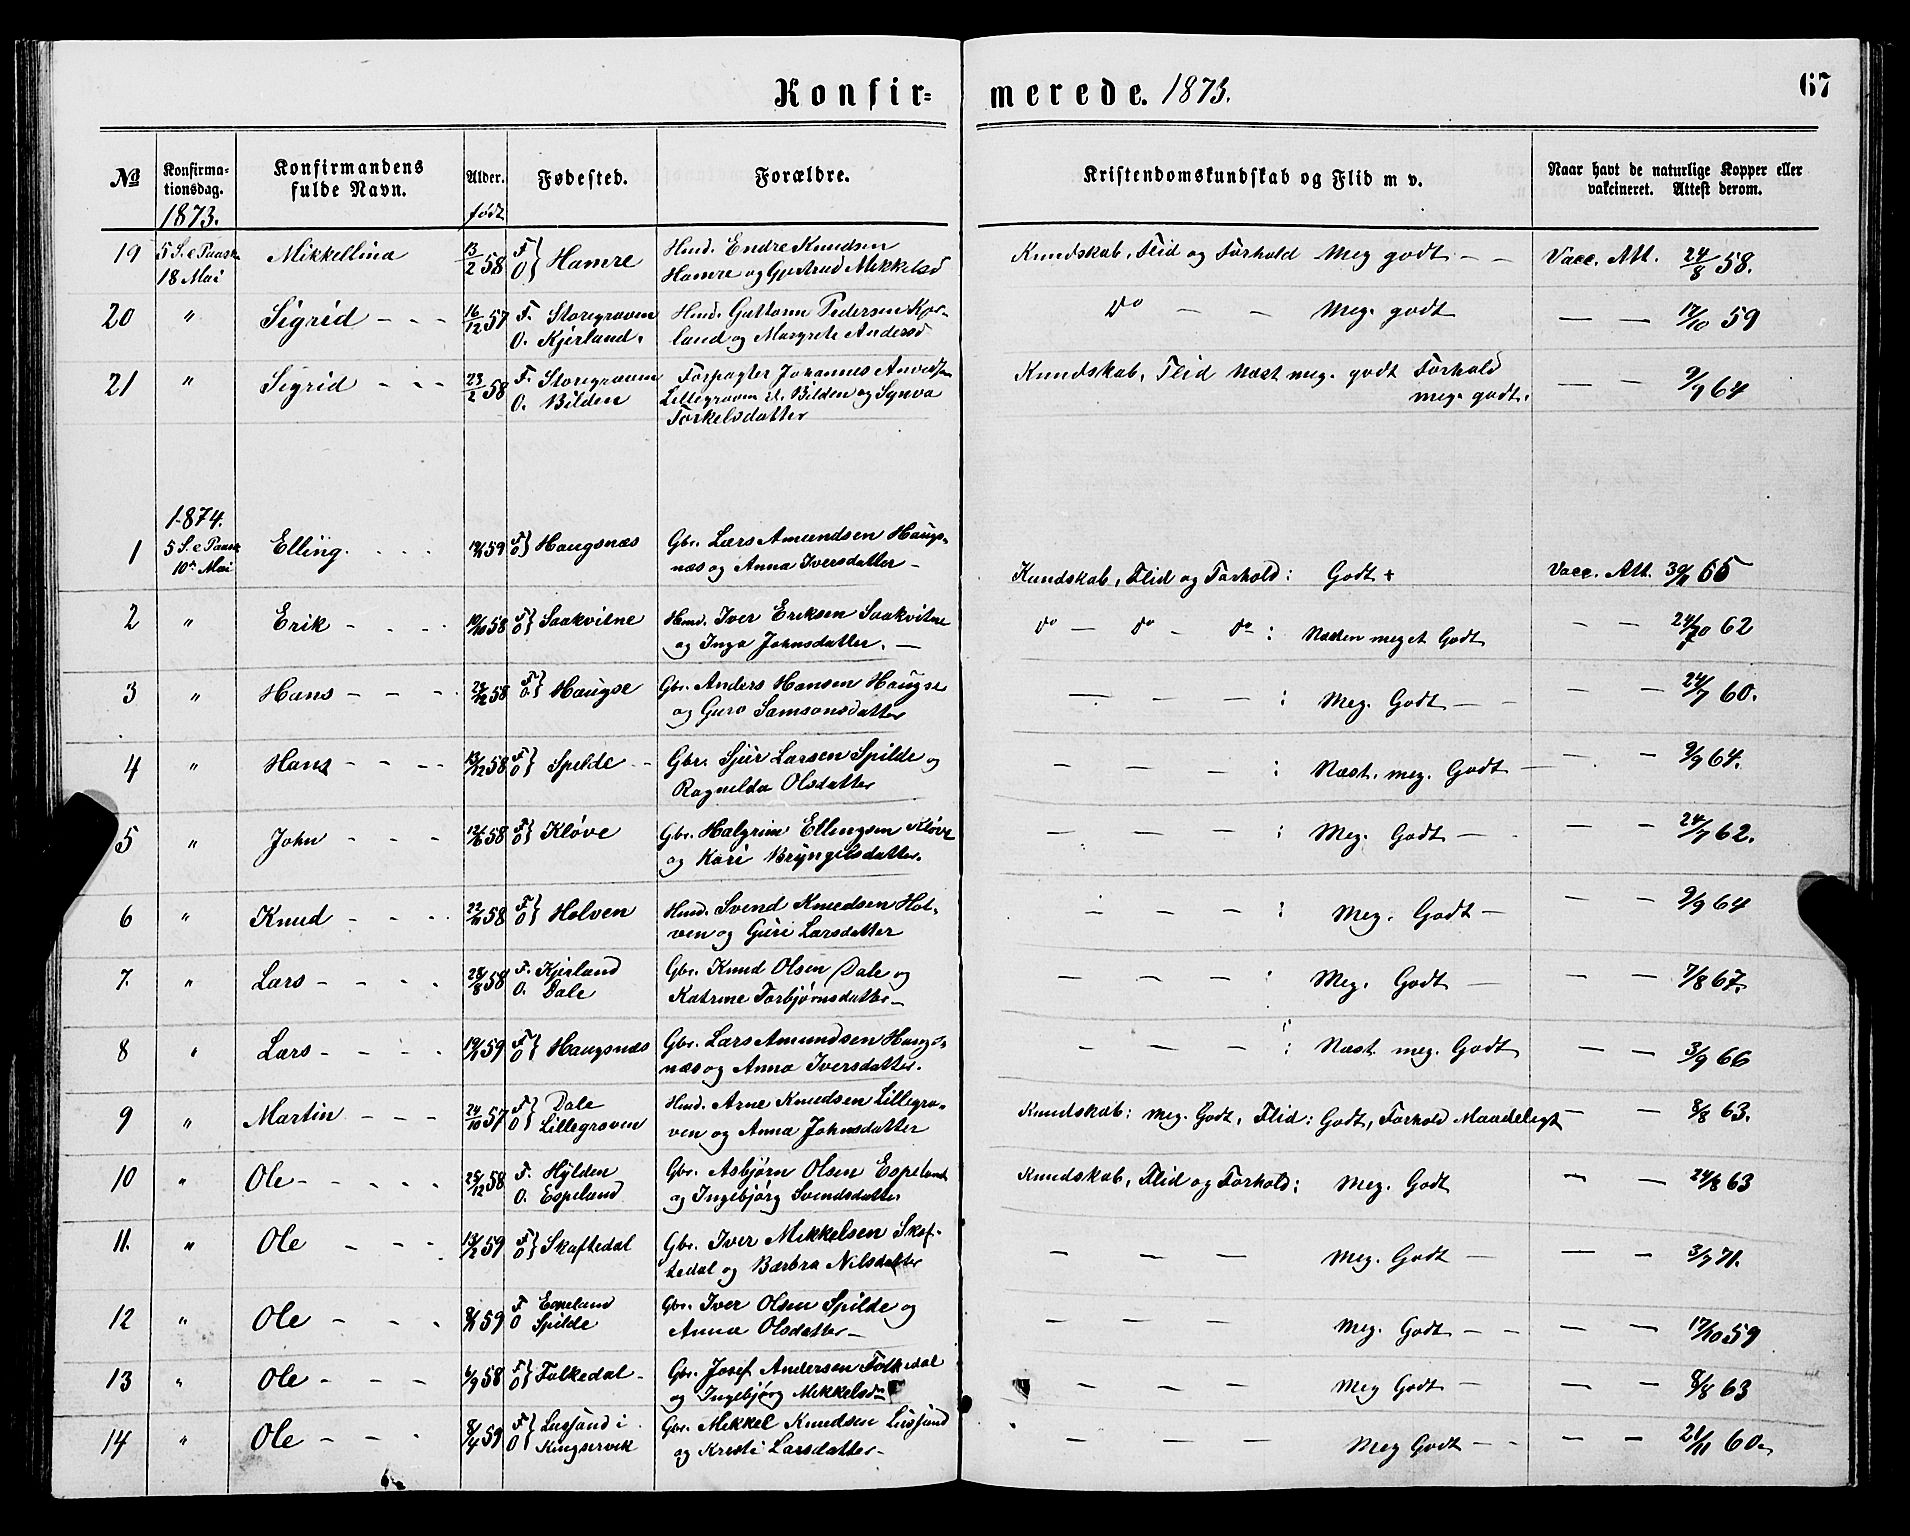 Konfir=merede. 1873. 67
№ Konfirma-tionsdag. Konfirmandens fulde Navn. Alder. Fødested. Forældre. Kristendomskundskab og Flid m v. Naar havt de naturlige Kopper eller vakcineret. Attest derom.
1873. født
19 5 S. e Paask Mikkellina 13/2 58 F O} Hamre Hmd. Endre Knudsen Kundskab, Flid og Forhold Meg godt - - Vacc. Att. 24/8 58.
18 Mai Hamre og Gjertrud Mikkelsd
20 " Sigrid - - - 16/12 57 F. Storegraven Hmd. Guttorm Pedersen Kjer- do - - Meg. godt - - 17/10 59
O. Kjerland. land og Margrete Andersd
21 " Sigrid - - - 23/2 58 F. Storegraven Forpagter Johannes Anders Kundskab, Flid Næst meg. godt Forhold - - 9/9 64
O. Bilden Lillegraven Bilden og Synva meg. godt.
Torkelsdatter
1874.
1 5 S. e Paask Elling. - - - 59 F O} Haugsnæs Gbr. Lars Amundsen Haugs-
10de Mai næs og Anna Iversdatter - Kundskab, Flid og Forhold: Godt + Vacc. Att. 65
2 " Erik - - - 58 F O} Saakvitne Hmd. Iver Eriksen Saakvitne do - do - do : Næsten meget Godt - - 62
og Inga Johnsdatter. -
3 " Hans - - - 58 F O} Haugse Gbr. Anders Hansen Haugse - - - : Meg. Godt - - - - 24/7 60.
og Guro Samsonsdatter
4 " Hans - - - - 58 F O} Spilde - Gbr. Sjur Larsen Spilde og - - - : Næst. meg. Godt - - - 9/9 64.
Ragnilda Olsdatter
5 " John - - - 58 F O} Kløve Gbr. Halgrim Ellingsen Kløve - - - : Meg. Godt - - - - 24/7 62.
og Kari Bryngelsdatter.
6 " Knud - - - 58 F O} Holven Hmd. Svend Knudsen Hol- - - - : Meg. Godt - - - 9/9 64
ven og Guri Larsdatter
7. " Lars - - - - 28/8 58 F. Kjerland Gbr. Knud Olsen Dale og - - - : Meg. Godt - - - 7/8 67.
O. Dale Katrine Torbjørnsdatter -
8 " Lars - - - - 59 F O} Haugsnæs Gbr. Lars Amundsen Haugs- - - - : Næst meg. Godt - - 3/9 66
næs og Anna Iversdatter.
9 " Martin - - - 24/10 57 F O} Dale Hmd. Arne Knudsen Lillegra- Kundskab: Meg. Godt, Flid: Godt, Forhold Maadeligt - - 8/8 63.
Lillegraven ven og Anna Johnsdatter
10 " Ole - - - - - 25/12 58 F. Hylden Gbr. Asbjørn Olsen Espeland Kundskab, Flid og Forhold: Meg. Godt - - 24/8 63
O. Espeland og Ingebjørg Svendsdatter
11. " Ole - - - 13/2 59 F O} Skaftedal Gbr. Iver Mikkelsen Skaf- - - - Meg. Godt - - - 3/7 71.
tedal og Barbra Nilsdatter
12 " Ole - - - 59 F Espeland Gbr. Iver Olsen Spilde og - - - Meg. Godt - - - - 17/10 59
O Spilde Anna Olsdatter -
13 " Ole - - - 6/9 58 F O} Folkedal - Gbr. Josef Andersen Folkedal - - - Meg Godt - - - 8/8 63
og Ingebjørg Mikkelsd
14 " Ole - - - 8/4 59 F O} Lussand i Gbr. Mikkel Knudsen Lussand - - - Meg Godt - - - - 21/11 60
Kingservik og Kristi Larsdatter -